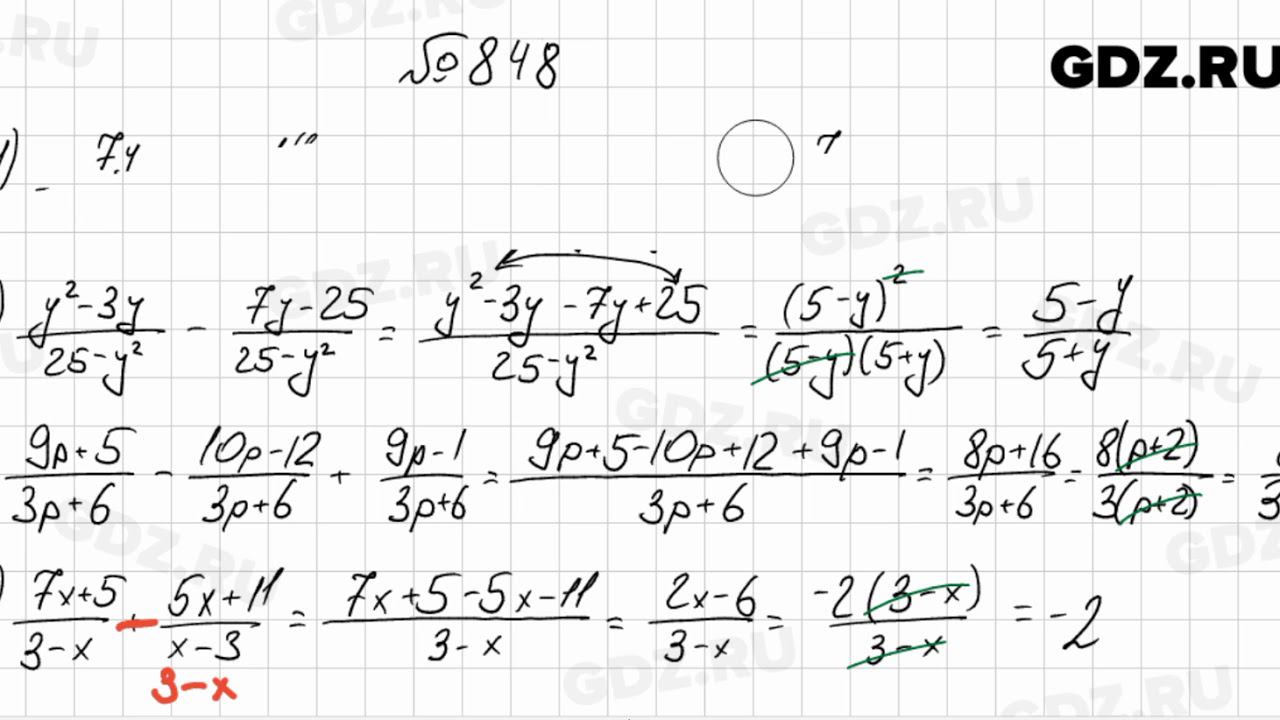 № 848
GDZ.RU
7y
(y²-3y)/(25-y²) - (7y-25)/(25-y²) = (y²-3y-7y+25)/(25-y²) = (5-y)²/((5-y)(5+y)) = (5-y)/(5+y)
(9p+5)/(3p+6) - (10p-12)/(3p+6) + (9p-1)/(3p+6) = (9p+5-10p+12+9p-1)/(3p+6) = (8p+16)/(3p+6) = 8(p+2)/(3(p+2)) =
(7x+5)/(3-x) - (5x+11)/(x-3) = (7x+5-5x-11)/(3-x) = (2x-6)/(3-x) = -2(3-x)/(3-x) = -2
3-x